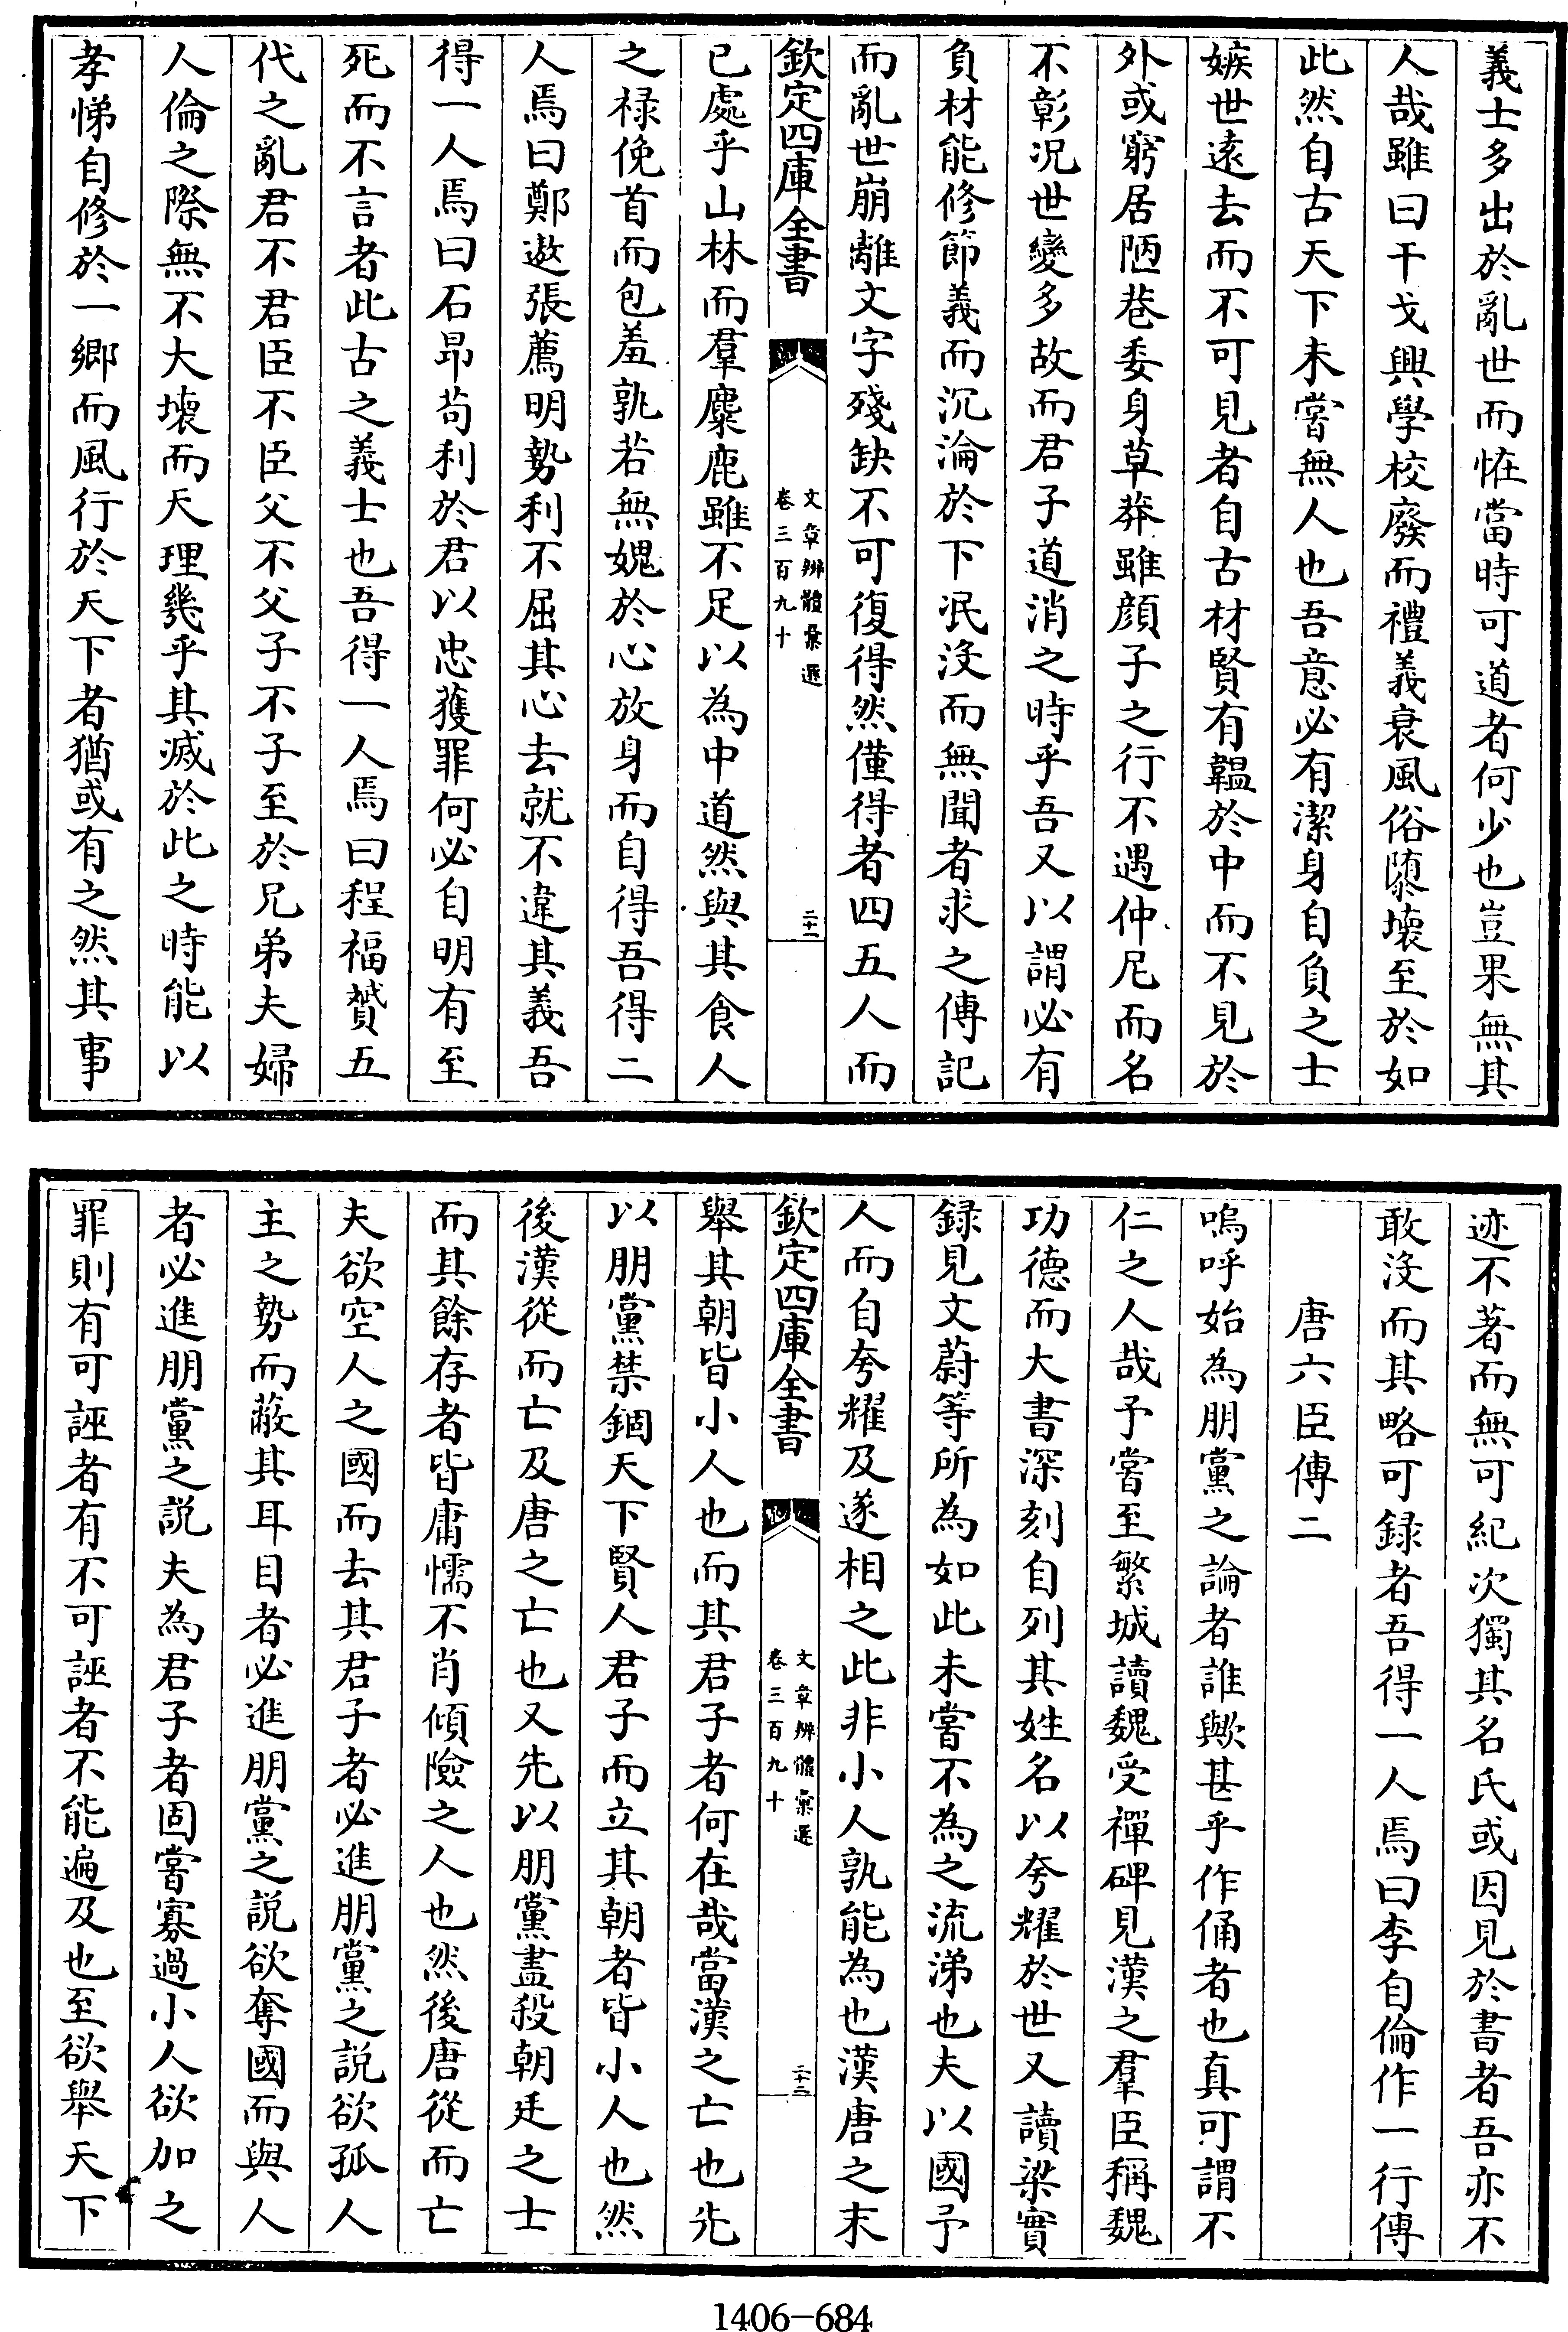 義士多出於亂世而恠當時可道者何少也豈果無其
人哉雖曰干戈興學校廢而禮義衰風俗隳壞至於如
此然自古天下未嘗無人也吾意必有潔身自負之士
嫉世遠去而不可見者自古材賢有韞於中而不見於
外或窮居陋巷委身草莽雖顔子之行不遇仲尼而名
不彰况世變多故而君子道消之時乎吾又以謂必有
負材能修節義而沉淪於下泯沒而無聞者求之傳記
而亂世崩離文字殘缺不可復得然僅得者四五人而
欽定四庫全書
文章辨體彙選
卷三百九十
二十一
已處乎山林而羣麋鹿雖不足以為中道然與其食人
之禄俛首而包羞孰若無媿於心放身而自得吾得二
人焉曰鄭遨張薦明勢利不屈其心去就不違其義吾
得一人焉曰石昂苟利於君以忠獲罪何必自明有至
死而不言者此古之義士也吾得一人焉曰程福贇五
代之亂君不君臣不臣父不父子不子至於兄弟夫婦
人倫之際無不大壞而天理幾乎其滅於此之時能以
孝悌自修於一鄉而風行於天下者猶或有之然其事
迹不著而無可紀次獨其名氏或因見於書者吾亦不
敢沒而其略可録者吾得一人焉曰李自倫作一行傳
唐六臣傳二
嗚呼始為朋黨之論者誰歟甚乎作俑者也真可謂不
仁之人哉予嘗至繁城讀魏受禪碑見漢之羣臣稱魏
功德而大書深刻自列其姓名以夸耀於世又讀梁實
録見文蔚等所為如此未嘗不為之流涕也夫以國予
人而自夸耀及遂相之此非小人孰能為也漢唐之末
欽定四庫全書
文章辨體彙選
卷三百九十
二十二
舉其朝皆小人也而其君子者何在哉當漢之亡也先
以朋黨禁錮天下賢人君子而立其朝者皆小人也然
後漢從而亡及唐之亡也又先以朋黨盡殺朝廷之士
而其餘存者皆庸懦不肖傾險之人也然後唐從而亡
夫欲空人之國而去其君子者必進朋黨之說欲孤人
主之勢而蔽其耳目者必進朋黨之說欲奪國而與人
者必進朋黨之説夫為君子者固嘗寡過小人欲加之
罪則有可誣者有不可誣者不能遍及也至欲舉天下
1406-684